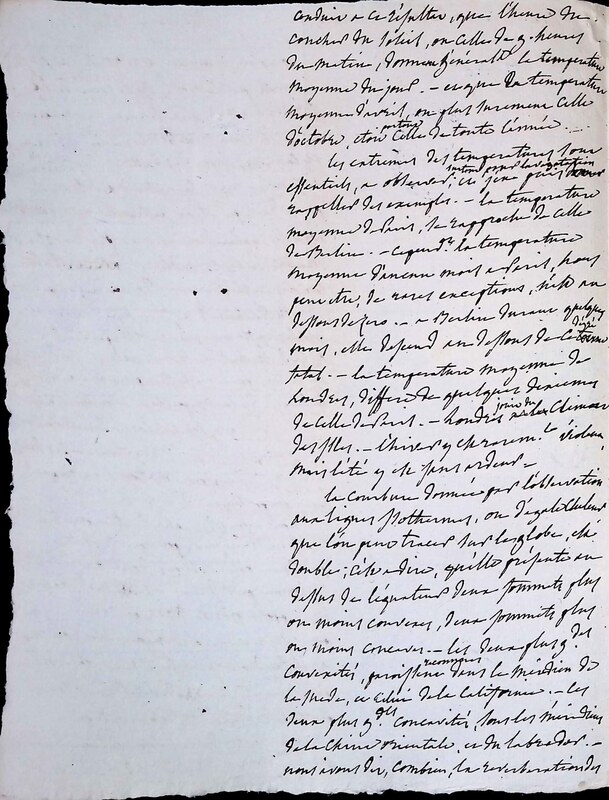 conduire a ce résultat, que l'heure du
coucher du soleil, ou celle de 9. heures
du matin, donnent généralt la température
moyenne du jour. — et que la température
moyenne d'avril, ou plus surement celle
d'octobre, etoit partout celle de toute l'année. —
les extrêmes des températures sont
essentiels, a observer, surtout pour la végétation
rappeller des exemples. — la température
moyenne de Paris, se rapproche de celle
de Berlin. — cependt la température
moyenne d'aucun mois a Paris, hors
peut etre, de rares exceptions, n'est au
dessous de zero. — a Berlin durant quelques
mois, elle descend au dessous de ce terme
fatal. — la température moyenne de
Londres, differe de quelques dixiemes
de celle de Paris. — Londres jouit du climat
des isles. — l'hiver y est raremt violent
mais l'été y est sans ardeur. —
la courbure donnée par l'observation
aux lignes isothermes, ou d'égale chaleur
que l'on peut tracer sur le globe, est
double; c'est a dire, qu'elle présente au
dessus de l'équateur deux sommets plus
ou moins convexes, deux sommets plus
ou moins concaves. — les deux plus gdes
convexités, paroissent reconnues dans le méridien de
la suede, et celui de la Californie. — les
deux plus gdes concavités, sous les méridiens
de la Chine orientale, et du labrador. —
nous avons dit, combien, la reverberation des